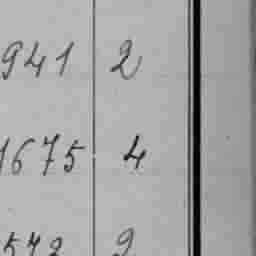 941 2
1675 4
573 2